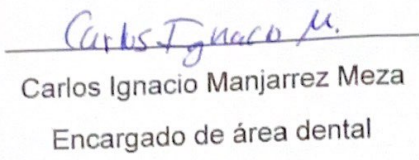 Carlos Ignacio M.
Carlos Ignacio Manjarrez Meza
Encargado de área dental